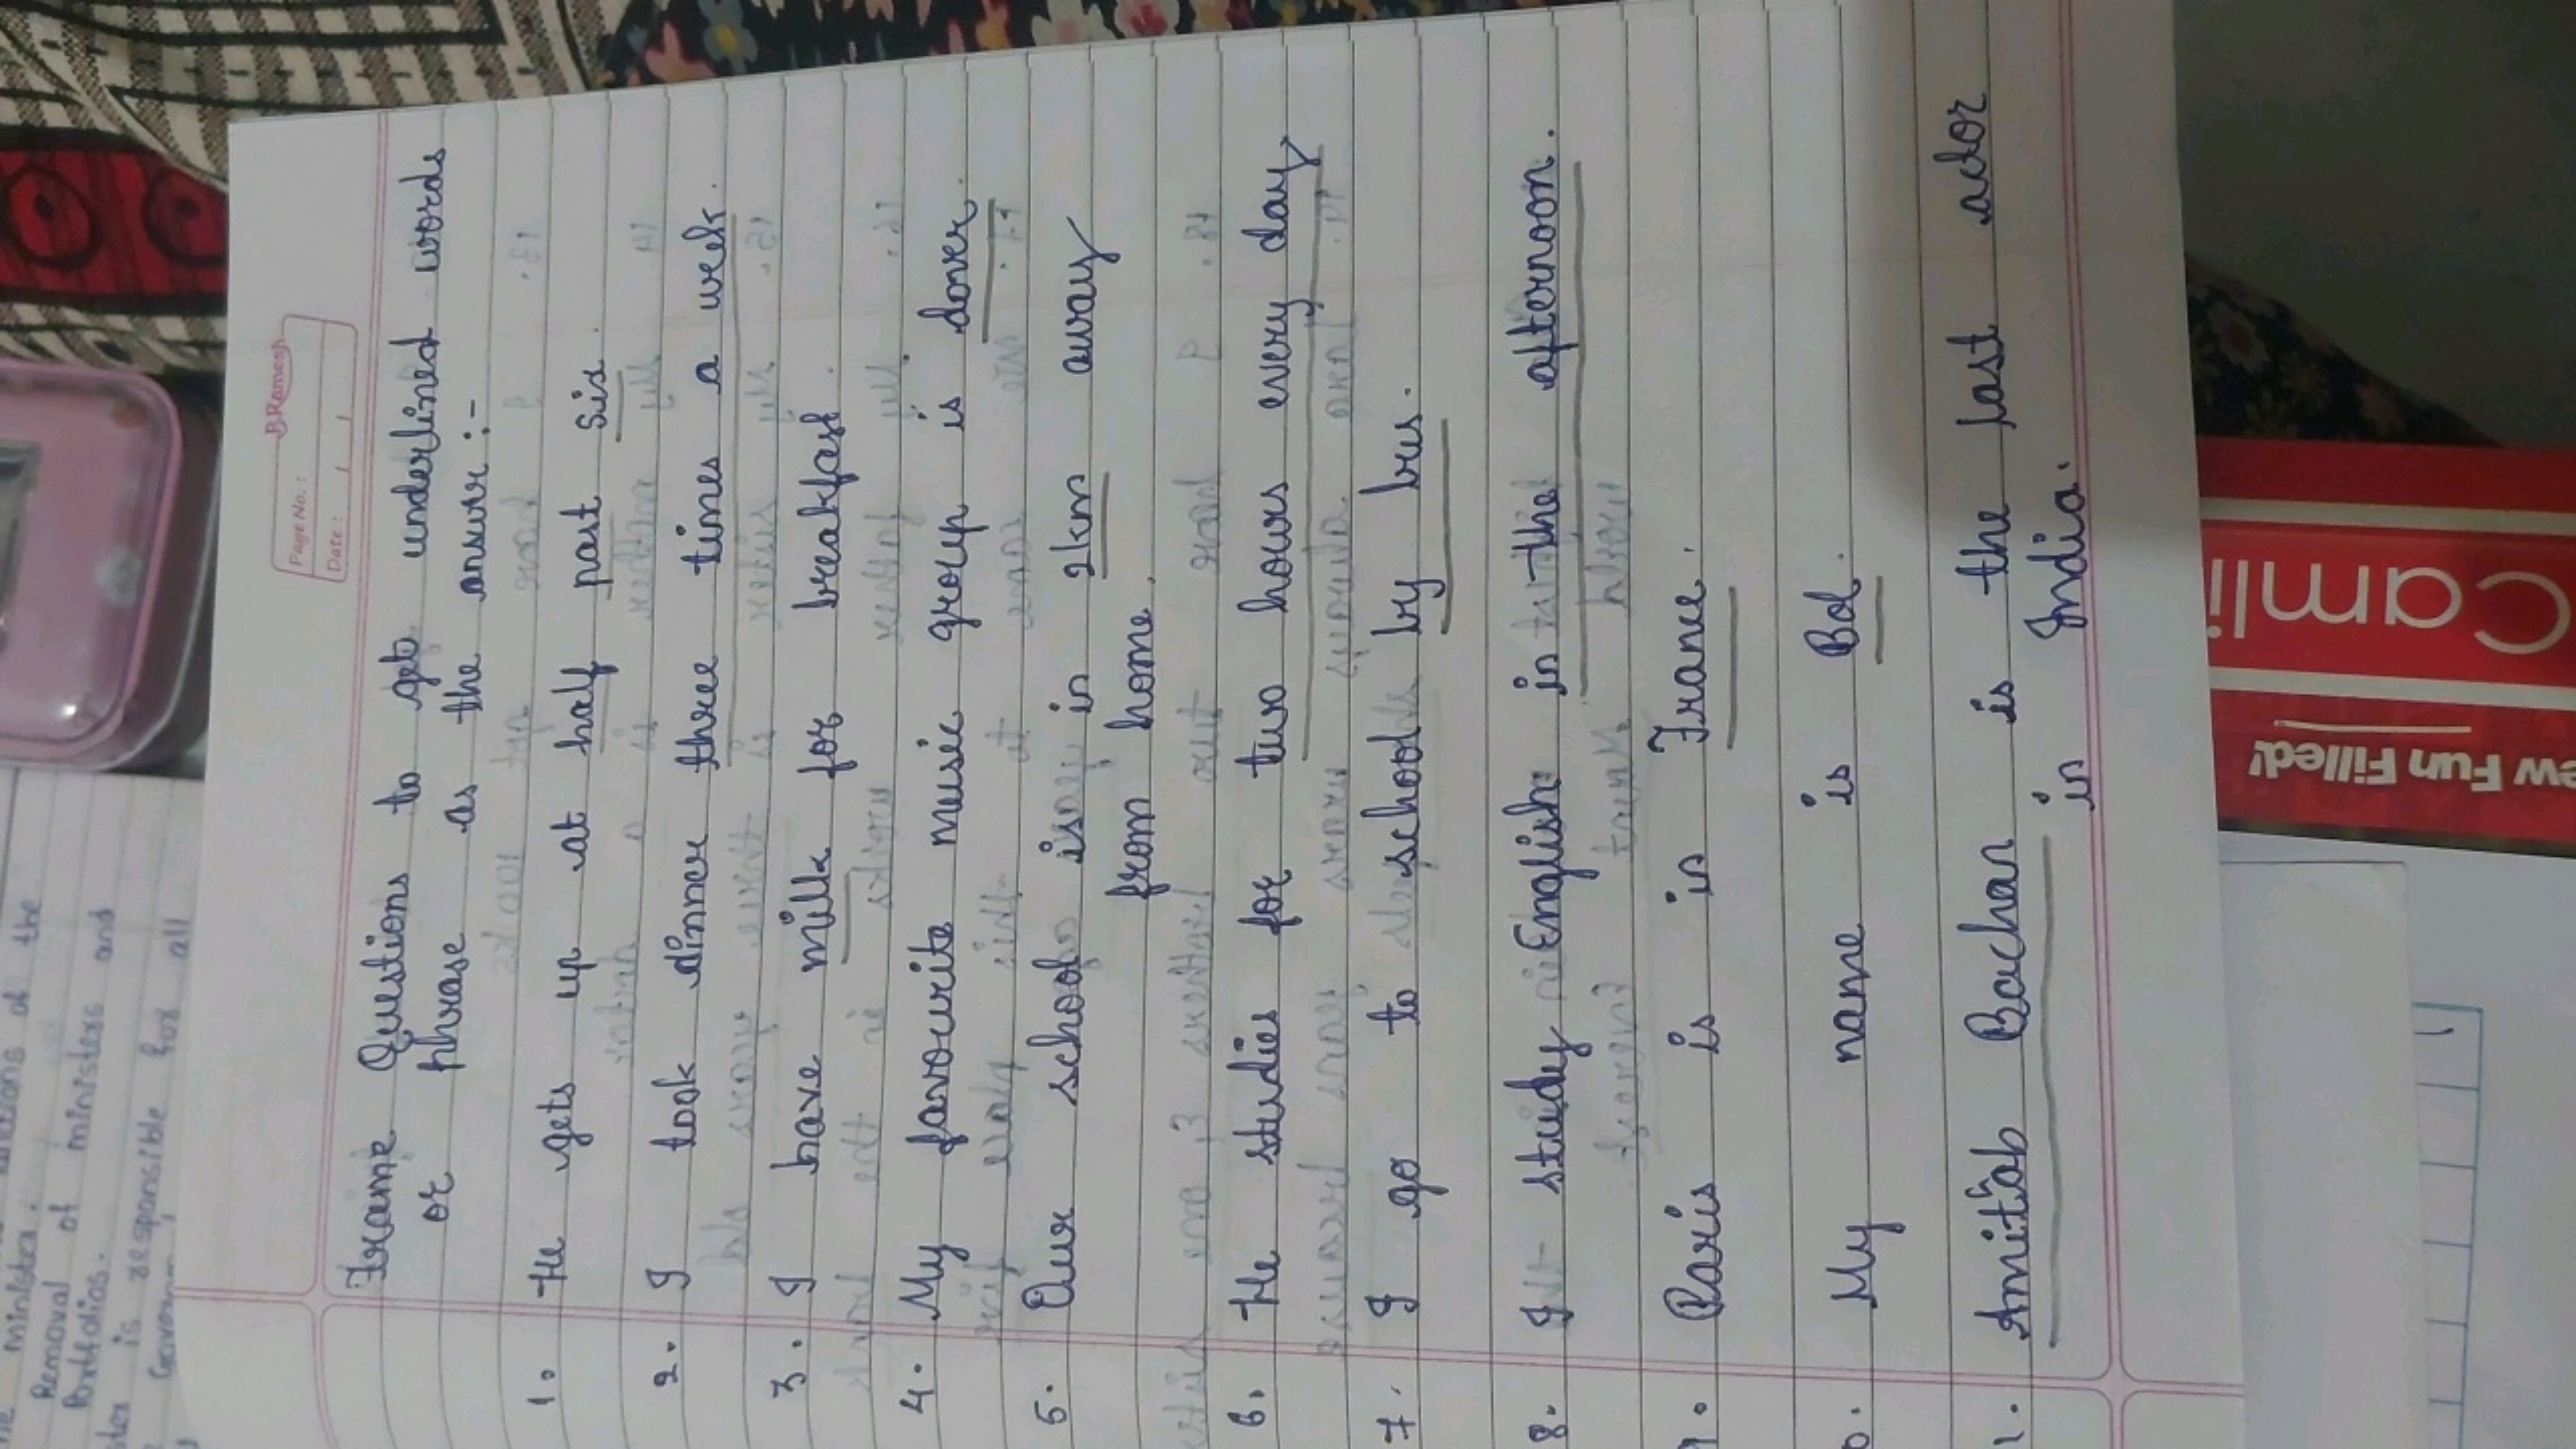 B.Ramesh
Page No.:
Date:
Frame Questions to get underlined words
or phrase as the answr :-
1. He gets up at half past six.
2. I took dinner three times a wek.
3. I have milk for breakfast.
4. My favourite music group is dover.
5. Our school is in 2km away
from home.
6. He studies for two hours every day
7. I go to school by bus.
8. I study English in the afternoon.
Paris is in France.
My name is Bob.
Amitab Bachan is the last actor
in India.
Removal of ministers and
Portfolios.
is responsible for all
Camli
ew Fun Filled!